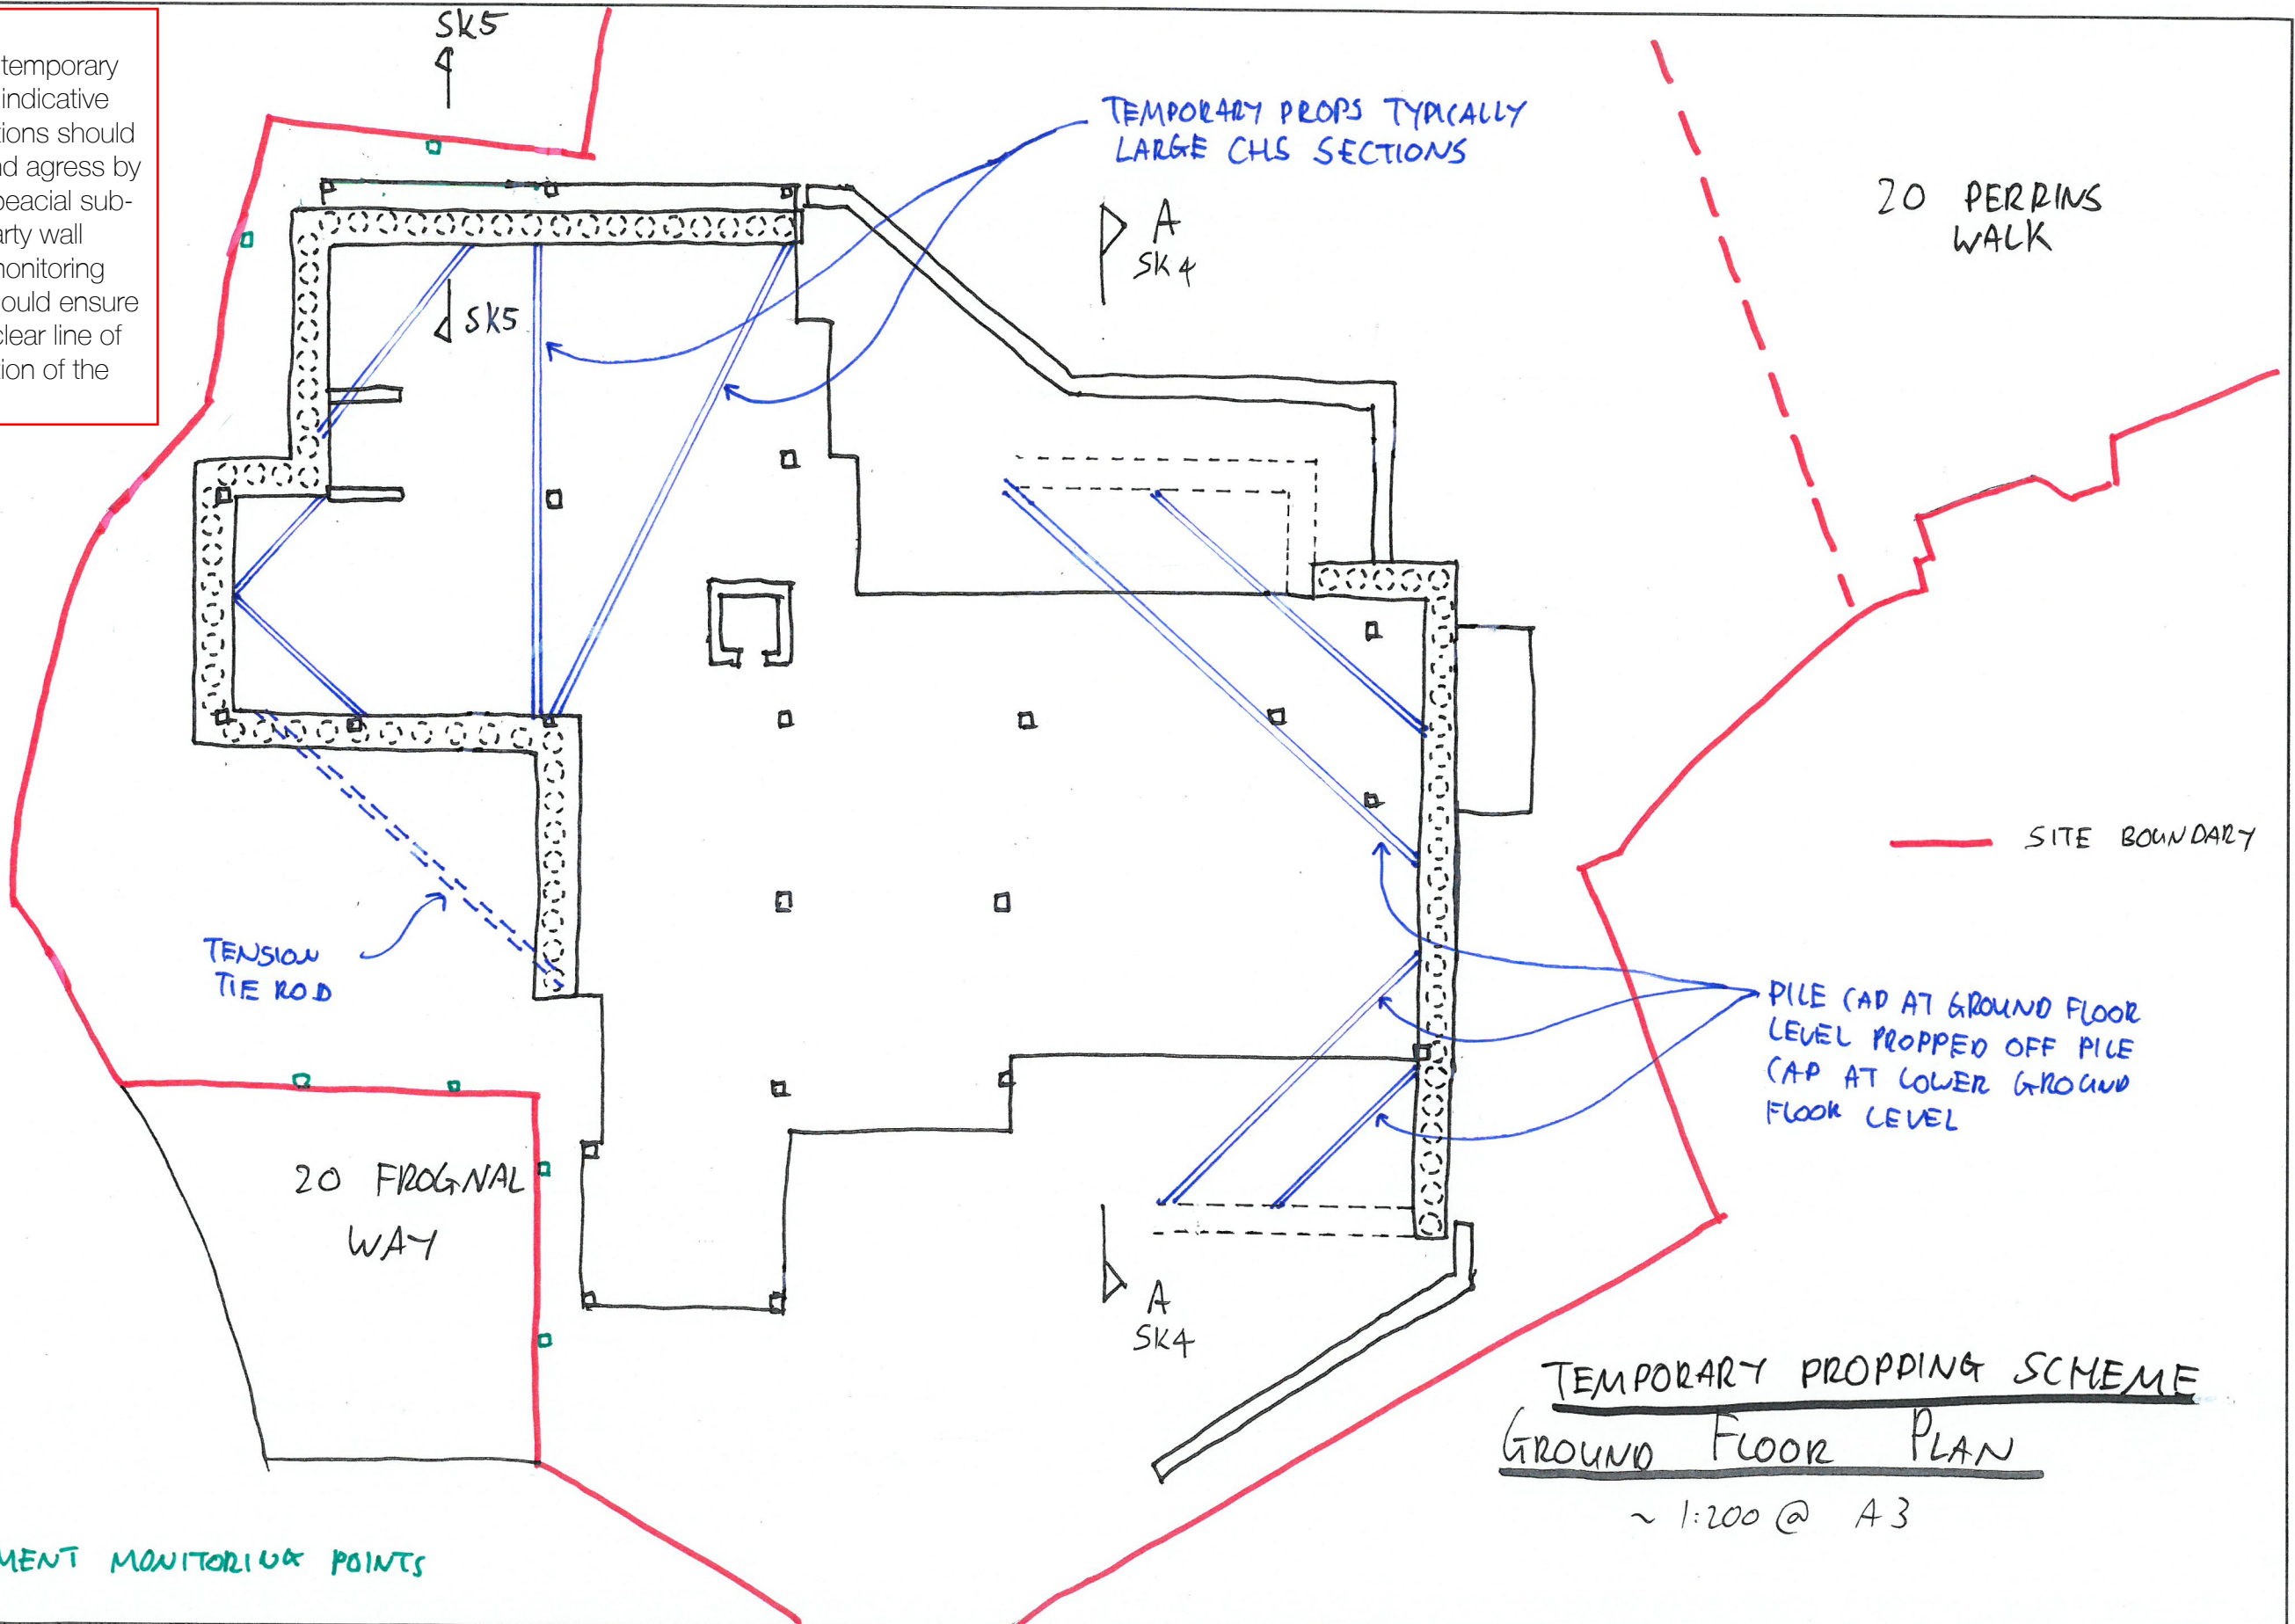 temporary
indicative
tions should
nd agress by
peacial sub-
arty wall
monitoring
ould ensure
clear line of
tion of the
SK5
TEMPORARY PROPS TYPICALLY
LARGE CHS SECTIONS
A
SK4
20 PERRINS
WALK
SK5
SITE BOUNDARY
TENSION
TIE ROD
PILE CAP AT GROUND FLOOR
LEVEL PROPPED OFF PILE
CAP AT LOWER GROUND
FLOOR LEVEL
20 FROGNAL
WAY
A
SK4
TEMPORARY PROPPING SCHEME
GROUND FLOOR PLAN
~ 1:200 @ A3
MENT MONITORING POINTS